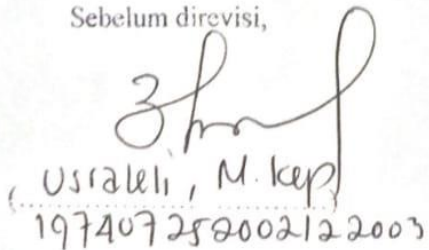 Sebelum direvisi,
( Usraleli, M. Kep )
197407252002122003